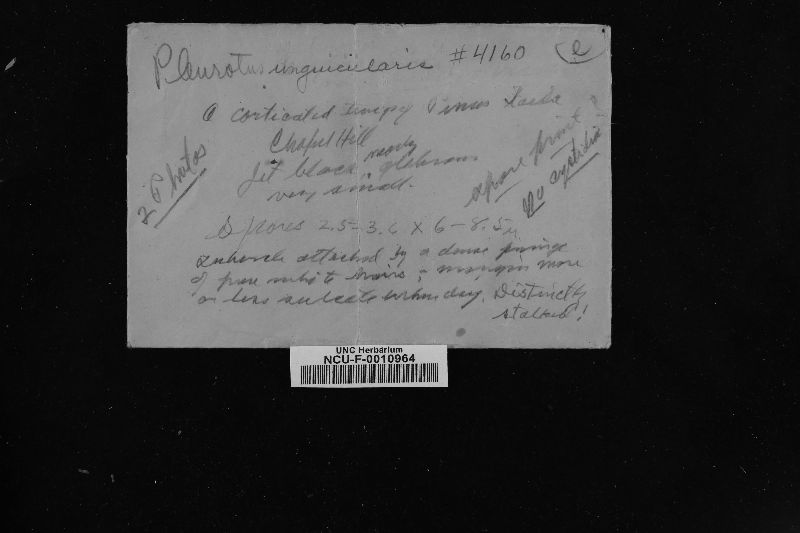 Pleurotus unguicularis #4160 e
corticated twigs Pinus Taeda
Chapel Hill
Jet black, nearly glabrous
very small.
2 Photos
spore print
No cystidia
Spores 2.5-3.6 X 6-8.5µ
attached by a dense fringe
of pure white hairs; margin more
or less sulcate when dry. Distinctly
stalked!
UNC Herbarium
NCU-F-0010964